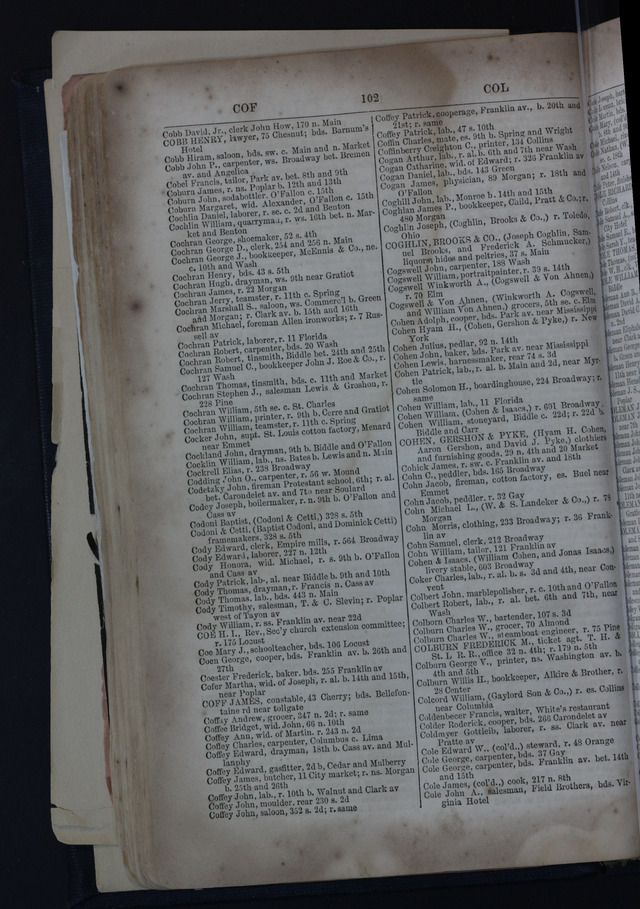 COF
102
COL
Cobb David, Jr., clerk John How, 170 n. Main
COBB HENRY, lawyer, 75 Chesnut; bds. Barnum's
Hotel
Cobb Hiram, saloon, bds. sw. c. Main and n. Market
Cobb John P., carpenter, ws. Broadway bet. Bremen
av. and Angelica
Cobel Francis, tailor, Park av. bet. 8th and 9th
Coburn James, r. ns. Poplar b. 12th and 13th
Coburn John, sodabottler, O'Fallon c. 15th
Coburn Margaret, wid. Alexander, O'Fallon c. 15th
Cochlin Daniel, laborer, r. se. c. 2d and Benton
Cochlin William, quarryman, r. ws. 16th bet. n. Mar-
ket and Benton
Cochran George, shoemaker, 52 s. 4th
Cochran George D., clerk, 254 and 256 n. Main
Cochran George J., bookkeeper, McEnnis & Co., ne.
c. 10th and Wash
Cochran Henry, bds. 43 s. 5th
Cochran Hugh, drayman, ws. 9th near Gratiot
Cochran James, r. 22 Morgan
Cochran Jerry, teamster, r. 11th c. Spring
Cochran Marshall S., saloon, ws. Commerc'l b. Green
and Morgan; r. Clark av. b. 15th and 16th
Cochran Michael, foreman Allen ironworks; r. 7 Rus-
sell av
Cochran Patrick, laborer, r. 11 Florida
Cochran Robert, carpenter, bds. 20 Wash
Cochran Robert, tinsmith, Biddle bet. 24th and 25th
Cochran Samuel C., bookkeeper John J. Roe & Co., r.
127 Wash
Cochran Thomas, tinsmith, bds. c. 11th and Market
Cochran Stephen J., salesman Lewis & Groshon, r.
228 Pine
Cochran William, 5th se. c. St. Charles
Cochran William, printer, r. 9th b. Cerre and Gratiot
Cochran William, teamster, r. 11th c. Spring
Cocker John, supt. St. Louis cotton factory, Menard
near Emmet
Cockland John, drayman, 9th b. Biddle and O'Fallon
Cocklin William, lab., ns. Bates b. Lewis and n. Main
Cockrell Elias, r. 238 Broadway
Codding John O., carpenter, r. 56 w. Mound
Codetzky John, fireman Protestant school, 6th; r. al.
bet. Carondelet av. and 7th near Soulard
Codey Joseph, boilermaker, r. n. 9th b. O'Fallon and
Cass av
Codoni Baptist, (Codoni & Cetti,) 328 s. 5th
Codoni & Cetti, (Baptist Codoni, and Dominick Cetti)
framemakers, 328 s. 5th
Cody Edward, clerk, Empire mills, r. 564 Broadway
Cody Edward, laborer, 227 n. 12th
Cody Honora, wid. Michael, r. s. 9th b. O'Fallon
and Cass av
Cody Patrick, lab., al. near Biddle b. 9th and 10th
Cody Thomas, drayman, r. Francis n. Cass av
Cody Thomas, lab., bds. 443 n. Main
Cody Timothy, salesman, T. & C. Slevin; r. Poplar
west of Tayon av
Cody William, r. ss. Franklin av. near 22d
COE H. I., Rev., Sec'y church extension committee;
r. 175 Locust
Coe Mary J., schoolteacher, bds. 106 Locust
Coen George, cooper, bds. Franklin av. b. 26th and
27th
Coester Frederick, baker, bds. 255 Franklin av
Cofer Martha, wid. of Joseph, r. al. b. 14th and 15th,
near Poplar
COFF JAMES, constable, 43 Cherry; bds. Bellefon-
taine rd near tollgate
Coffay Andrew, grocer, 347 n. 2d; r. same
Coffee Bridget, wid. John, 66 n. 10th
Coffey Ann, wid. of Martin, r. 243 n. 2d
Coffey Charles, carpenter, Columbus c. Lima
Coffey Edward, drayman, 18th b. Cass av. and Mul-
lanphy
Coffey Edward, gasfitter, 2d b, Cedar and Mulberry
Coffey James, butcher, 11 City market; r. ns. Morgan
b. 25th and 26th
Coffey John, lab., r. 10th b. Walnut and Clark av
Coffey John, moulder, rear 230 s. 2d
Coffey John, saloon, 352 s. 2d; r. same
Coffey Patrick, cooperage, Franklin av., b. 20th and
21st; r. same
Coffey Patrick, lab., 47 s. 10th
Coffin Charles, mate, es. 9th b. Spring and Wright
Coffinberry Creighton C., printer, 134 Collins
Cogan Arthur, lab., r. al. b. 6th and 7th near Wash
Cogan Catharine, wid. of Edward; r. 325 Franklin av
Cogan Daniel, lab., bds. 143 Green
Cogan James, physician, 89 Morgan; r. 18th and
O'Fallon
Coghill John, lab., Monroe b. 14th and 15th
Coghlan James P., bookkeeper, Child, Pratt & Co.; r.
480 Morgan
Coghlin Joseph, (Coghlin, Brooks & Co.,) r. Toledo,
Ohio
COGHLIN, BROOKS & CO., (Joseph Coghlin, Sam-
uel Brooks, and Frederick A. Schmucker,)
liquors hides and peltries, 37 s. Main
Cogswell John, carpenter, 188 Wash
Cogswell William, portraitpainter, r. 39 s. 14th
Cogswell Winkworth A., (Cogswell & Von Ahnen,)
r. 70 Elm
Cogswell & Von Ahnen, (Winkworth A. Cogswell,
and William Von Ahnen,) grocers, 5th se. c. Elm
Cohen Adolph, cooper, bds. Park av. near Mississippi
Cohen Hyam H., (Cohen, Gershon & Pyke,) r. New
York
Cohen Julius, pedlar, 92 n. 14th
Cohen John, baker, bds. Park av. near Mississippi
Cohen Lewis, harnessmaker, rear 74 s. 3d
Cohen Patrick, lab., r. al. b. Main and 2d, near Myr-
tle
Cohen Solomon H., boardinghouse, 224 Broadway; r.
same
Cohen William, lab., 11 Florida
Cohen William, (Cohen & Isaacs,) r. 601 Broadway
Cohen William, stoneyard, Biddle c. 22d; r. 22d b.
Biddle and Carr
COHEN, GERSHON & PYKE, (Hyam H. Cohen,
Aaron Gershon, and David J. Pyke,) clothiers
and furnishing goods, 29 n. 4th and 20 Market
Cohick James, r. sw. c. Franklin av. and 18th
Cohn C., peddler, bds. 165 Broadway
Cohn Jacob, fireman, cotton factory, es. Buel near
Emmet
Cohn Jacob, peddler, r. 32 Gay
Cohn Michael L., (W. & S. Landeker & Co.,) r. 78
Morgan
Cohn Morris, clothing, 233 Broadway; r. 36 Frank-
lin av
Cohn Samuel, clerk, 212 Broadway
Cohn William, tailor, 121 Franklin av
Cohen & Isaacs, (William Cohen, and Jonas Isaacs,)
livery stable, 603 Broadway
Coker Charles, lab., r. al. b. s. 3d and 4th, near Con-
vent
Colbert John, marblepolisher, r. c. 10th and O'Fallon
Colbert Robert, lab., r. al. bet. 6th and 7th, near
Wash
Colborn Charles W., bartender, 107 s. 3d
Colburn Charles W., grocer, 70 Almond
Colburn Charles W., steamboat engineer, r. 75 Pine
COLBURN FREDERICK M., ticket agt. T. H. &
St. L. R. R., office 32 n. 4th; r. 179 n. 5th
Colburn George V., printer, ns. Washington av. b.
4th and 5th
Colburn Willis H., bookkeeper, Alkire & Brother, r.
28 Center
Colcord William, (Gaylord Son & Co.,) r. es. Collins
near Columbia
Coldenbecer Francis, waiter, White's restaurant
Colder Roderick, cooper, bds. 266 Carondelet av
Coldmyer Gottleib, laborer, r. ss. Clark av. near
Pratte av
Cole Edward W., (col'd.,) steward, r. 48 Orange
Cole George, carpenter, bds. 37 Gay
Cole George, carpenter, bds. Franklin av. bet. 14th
and 15th
Cole James, (col'd.,) cook, 217 n. 8th
Cole John A., salesman, Field Brothers, bds. Vir-
ginia Hotel